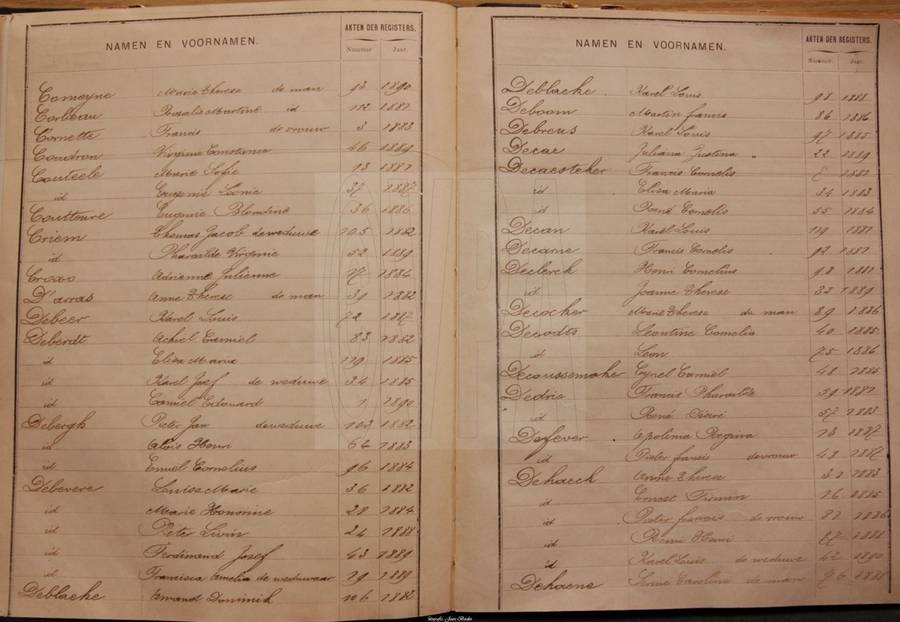 NAMEN EN VOORNAMEN.
AKTEN DER REGISTERS.
Nummer Jaar.
Comeyne Marie Therese de man 93 1890
Corbeau Rosalie Martine id 112 1881
Cornette Francis de vrouw 3 1883
Coudron Virginie Constance 46 1889
Couteele Marie Sofie 13 1881
id Eugenie Leonie 37 1887
Couttoure Eugenie Blondine 36 1886
Criem Thomas Jacob de weduwe 105 1882
id Pharaïlde Virginie 52 1889
Adrienne Julienne 77 1884
D'arras Anne Therese de man 39 1882
Debeer Karel Louis 72 1887
Deberdt Achiel Camiel 83 1882
id Elisa Maria 119 1885
id Karel Josef de weduwe 34 1885
id Camiel Edouard 1 1890
Debergh Pieter Jan de weduwe 103 1882
id Aloïs Henri 64 1883
id Emiel Cornelius 96 1884
Debevere Louise Marie 36 1882
id Marie Honorine 28 1884
id Peter Livin 24 1888
id Ferdinand Josef 43 1889
id Francisca Amelia de weduwaar 79 1889
Deblacke Armand Dominik 106 1882
NAMEN EN VOORNAMEN.
AKTEN DER REGISTERS.
Nummer. Jaar.
Deblacke Karel Louis 98 1888
Deboom Martin francis 86 1886
Debreus Karel Louis 97 1885
Decae Juliana Justina 22 1889
Decaesteker Francis Cornelis 1882
id Elisa Maria 34 1883
id René Cornelis 55 1884
Decan Karel Louis 119 1881
Decame Francis Cornelis 92 1887
Declerck Henri Cornelius 98 1881
id Joanne Therese 32 1889
Decocker Marie Therese de man 89 1886
Decodts Leontine Cornelia 40 1885
id Leon 75 1886
Decoussemaker Cyriel Camiel 48 1885
Dedrie Francis 39 1882
id René Désiré 57 1883
Defever Apolonia Regina 13 1887
id Pieter francis de vrouw 48 1887
Dehaeck Anne Therese 32 1883
id Ernest Firmin 26 1885
id Pieter francis de vrouw 82 1886
id Remi Henri 87 1888
id Karel Louis de weduwe 42 1890
Dehaene Carolina de man 76 1881